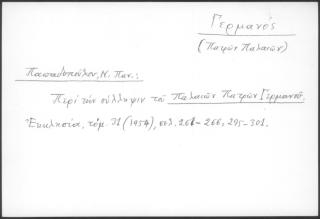 Γερμανός
(Πατρῶν Παλαιῶν)
Παπαδοπούλου, Ν. Παν.:
Περὶ τὴν σύλληψιν τοῦ Παλαιῶν Πατρῶν Γερμανοῦ.
Ἐκκλησία, τόμ. 31 (1954), σελ. 261-266, 295-301.